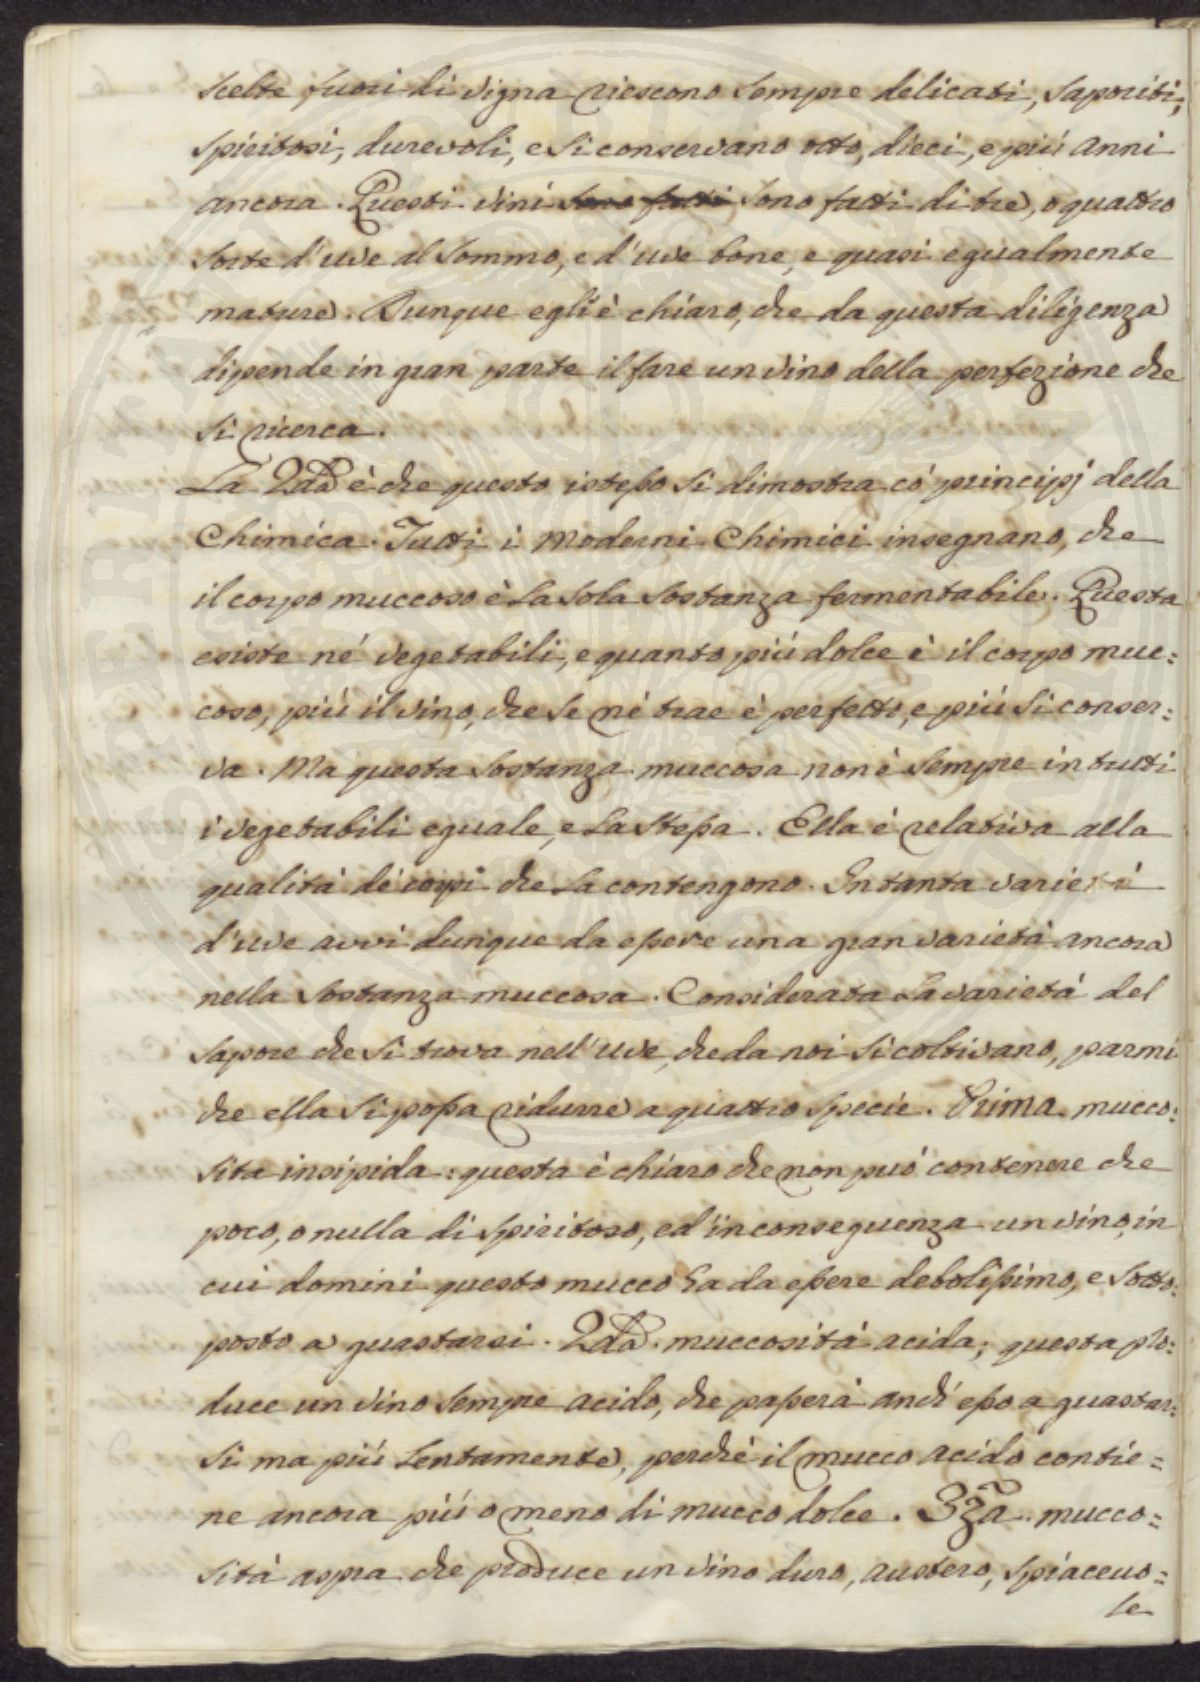 scelte fuori di vigna riescono sempre delicati, saporiti,
spiritosi, durevoli, e si conservano otto, dieci, e più anni
ancora. Questi vini sono fatti sono fatti di tre, o quattro
sorte d'uve al sommo, e d'uve bone, e quasi egualmente
mature. Dunque egli è chiaro, che da questa diligenza
dipende in gran parte il fare un vino della perfezione che
si ricerca.
La 2da è che questo istesso si dimostra có principj della
Chimica. Tutti i moderni Chimici insegnano, che
il corpo muccoso è la sola sostanza fermentabile. Questa
esiste né vegetabili, e quanto più dolce è il corpo muc=
coso, più il vino, che se né trae è perfetto, e più si conser=
va. Ma questa sostanza muccosa non è sempre in tutti
i vegetabili eguale, e la stessa. Ella è relativa alla
qualità dé corpi che la contengono. In tanta varietà
d'uve avvi dunque da essere una gran varietà ancora
nella sostanza muccosa. Considerata la varietà del
sapore che si trova nell'uve, che da noi si coltivano, parmi
che ella si possa ridurre a quattro specie. Prima mucco=
sita insipida: questa è chiaro che non può contenere che
poco, o nulla di spiritoso, ed'inconseguenza un vino, in
cui domini questo mucco ha da essere debolissimo, e sotto=
posto a guastarsi. 2da. muccosità acida; questa pro=
duce un vino sempre acido, che passerà anch'esso a guastar=
si ma più lentamente, perchè il mucco acido contie=
ne ancora più o meno di mucco dolce. 3za. mucco=
sità aspra che produce un vino duro, austero, spiacevo=
le